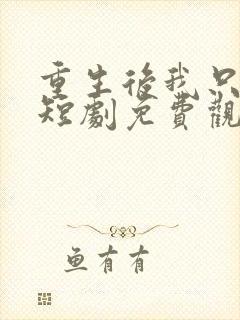 重生後我只
短劇免費觀
鱼有有